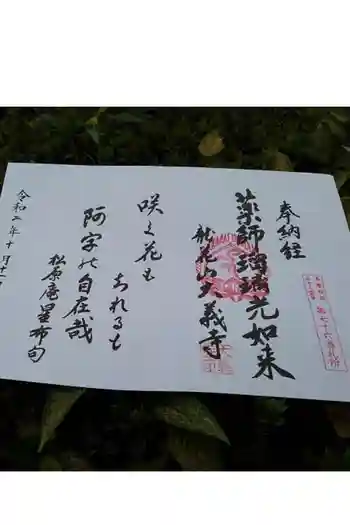 奉納経
薬師瑠璃光如来
龍花山大義寺
咲く花も
あれるも
阿字の自在哉
松原庵星布句
令和二年十月十一
第七十六番札所